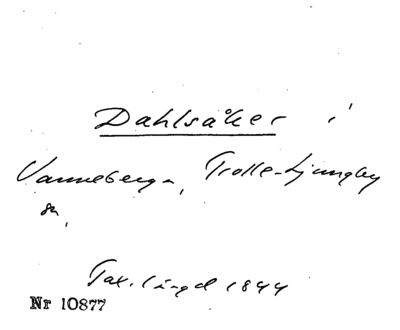 Dahlsåker i
Vanneberga, Trolle-Ljungby
sn,
Tax. längd 1844
Nr 10877